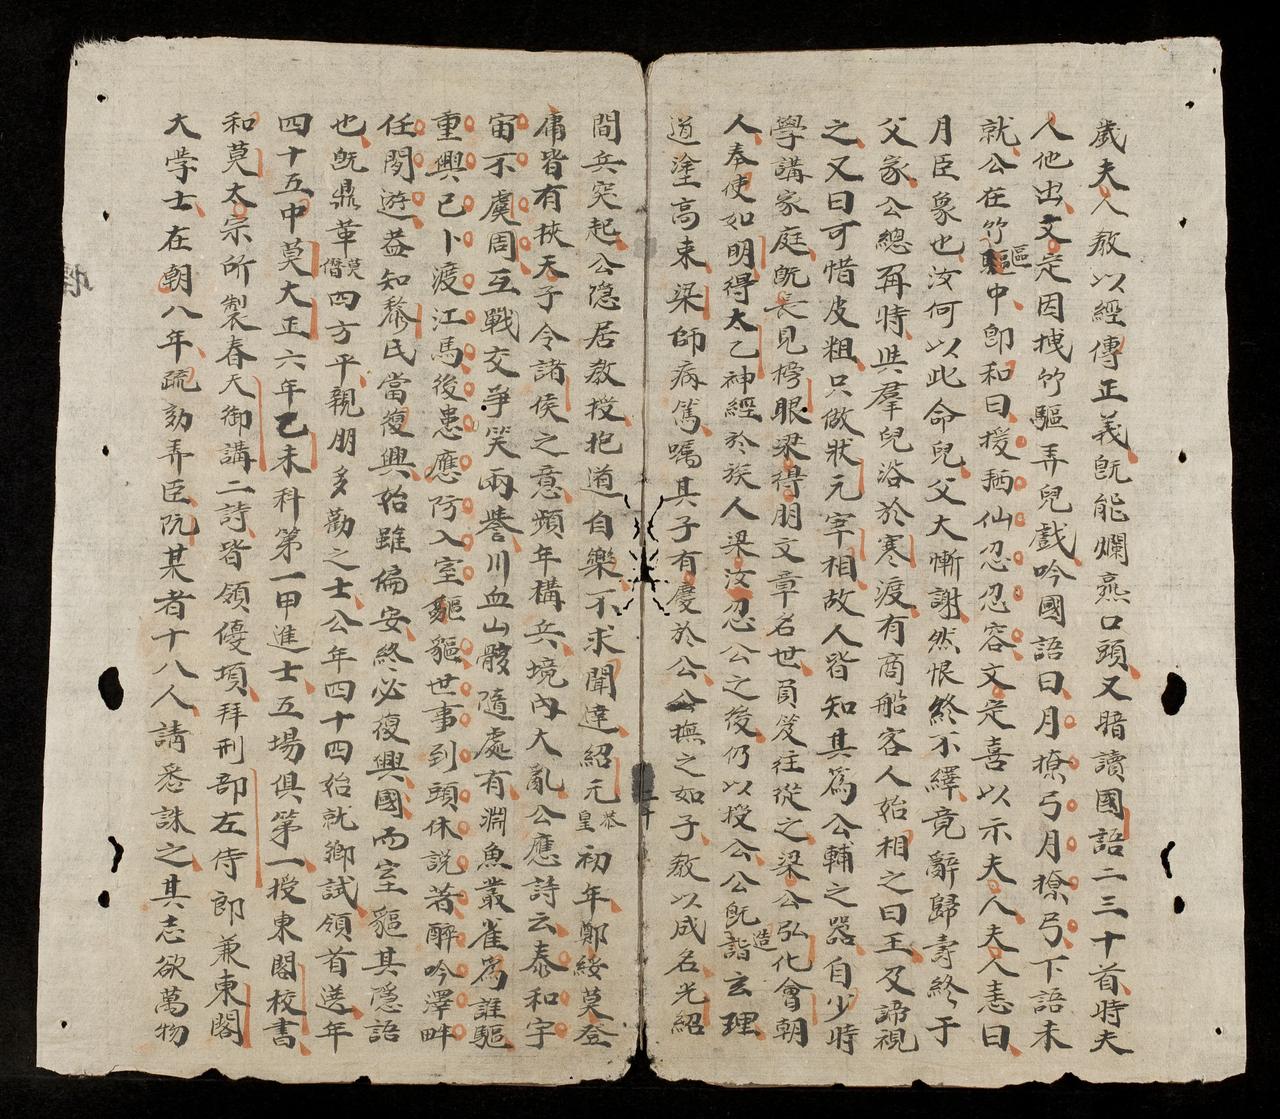 歲夫人教以經傳正義旣能爛燕口頭又暗讀國語二三十首時夫
人他出文定因拽竹驅弄兒戲吟國語曰月撩弓月撩弓下語未
就公在竹驅中卽和曰援㨋仙忍忍容文定喜以示夫人夫人恚曰
月臣象也汝何以此命兒父大慚謝然恨終不繹竟辭歸壽終于
父家公總角時與羣兒浴於寒渡有商船客人始相之曰王及諦視
之又曰可惜皮粗只做狀元宰相故人皆知其爲公輔之器自少時
學講家庭旣長見榜眼梁得朋文章名世負笈往從之梁公弘化會朝
人奉使如明得太乙神經於族人梁汝忽公之後仍以授公公旣造詣玄理
道塗高未梁師病篤囑其子有慶於公公撫之如子教以成名光紹
間兵突起公隱居教授抱道自樂不求聞達紹元恭皇初年鄭綏莫登
庸皆有挾天子令諸侯之意頻年構兵境內大亂公應詩云泰和宇
宙不虞周互戰交爭笑兩讐川血山骸隨處有淵魚叢雀爲誰驅
重興已卜渡江馬後患應防入室貙世事到頭休說著醉吟澤畔
任閑遊葢知黎民當復興始雖偏安終必復興國而室貙其隱語
也旣鼎革莫僭四方平親朋多勸之士公年四十四始就鄉試領首選年
四十五中莫大正六年乙未科第一甲進士五場俱第一授東閣校書
和莫太宗所製春天御講二詩皆領優項拜刑部左侍郎兼東閣
大學士在朝八年疏劾弄臣阮某者十八人請悉誅之其志欲萬物